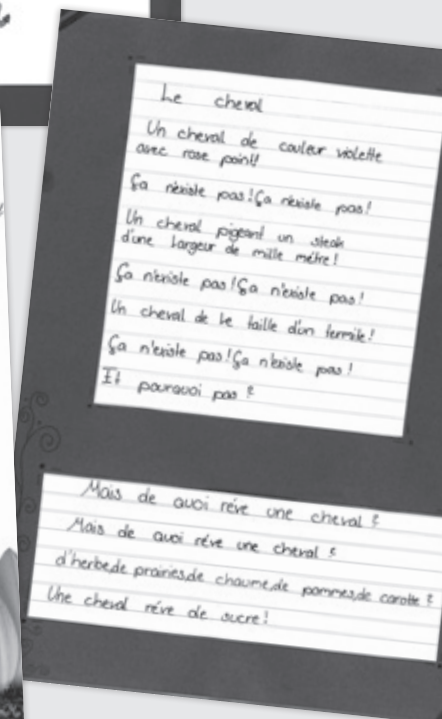 Le cheval
Un cheval de couleur violette
avec rose point!
Ça n'existe pas! Ça n'existe pas!
Un cheval pigeant un steak
d'une largeur de mille métre!
Ça n'existe pas! Ça n'existe pas!
Un cheval de le taille d'un termite!
Ça n'existe pas! Ça n'existe pas!
Et pourquoi pas?
Mais de quoi réve une cheval?
Mais de quoi réve une cheval?
d'herbe,de prairies,de chaume,de pommes,de carotte?
Une cheval réve de sucre!